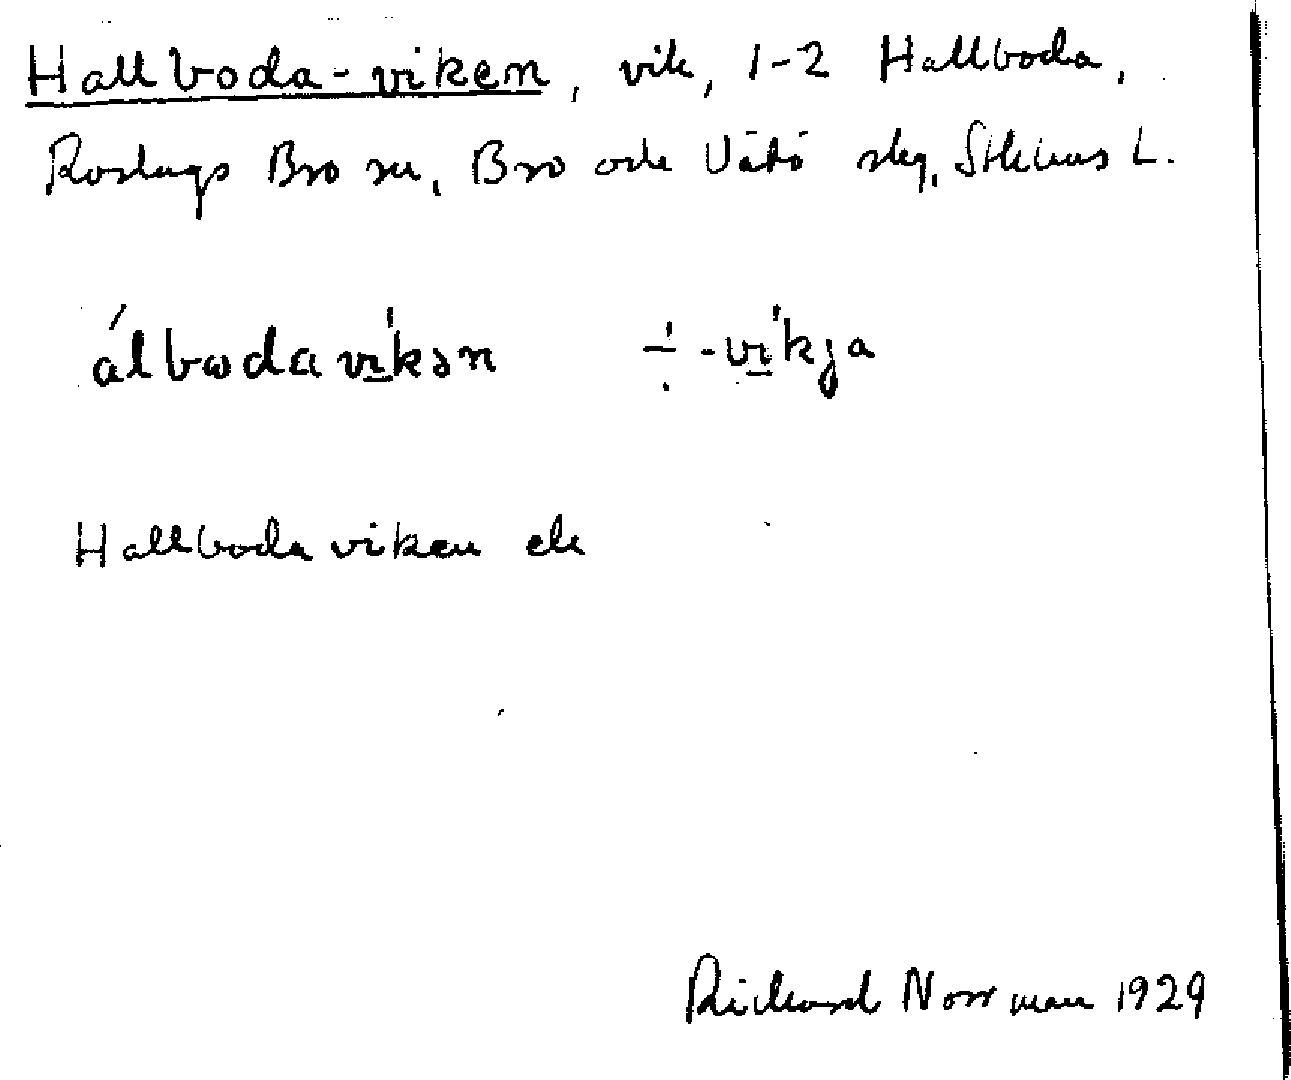 Hallboda-viken, vik, 1-2 Hallboda,
Roslags Bro sn, Bro och Vätö skg, Sthlms L.
álbodavi̲kən ÷ -vi̲kja
Hallbodaviken ek
Richard Norrman 1929